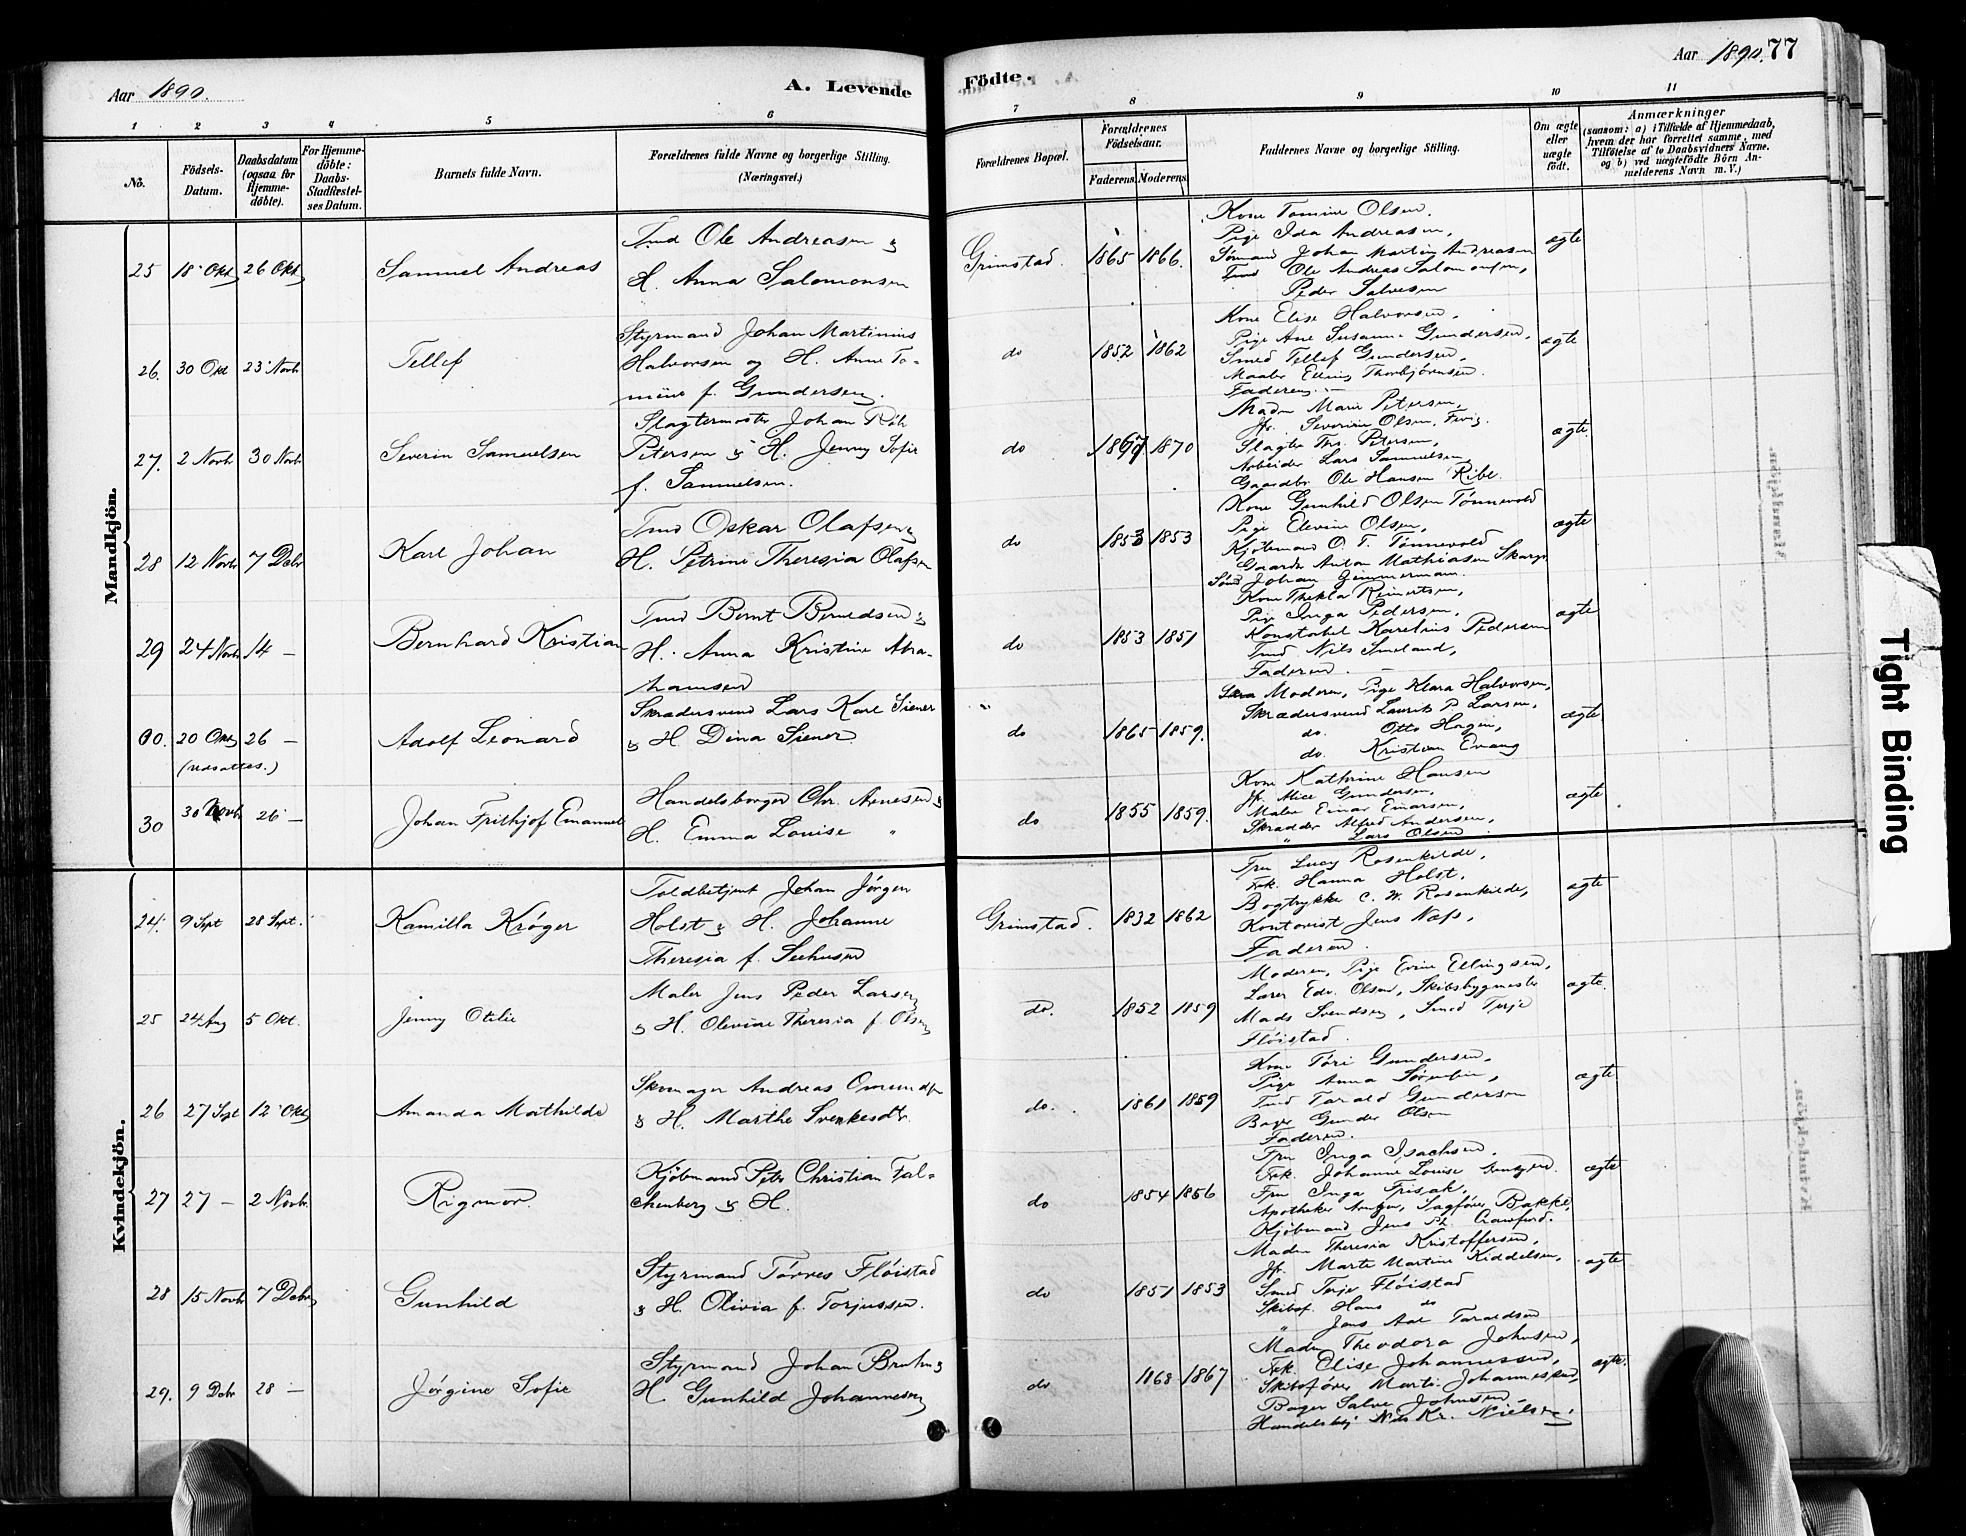 Aar 1890.
A. Levende
Födte.
Aar 1890. 77
1 2 3 4 5 6 7 8 9 10 11
No.
Födsels-
Datum.
Daabsdatum
(ogsaa for
Hjemme-
döbte).
For Hjemme-
döbte:
Daabs-
Stadfæstel-
ses Datum.
Barnets fulde Navn.
Forældrenes fulde Navne og borgerlige Stilling.
(Næringsvei.)
Forældrenes Bopæl.
Forældrenes
Födselsaar.
Faderens. Moderens.
Faddernes Navne og borgerlige Stilling.
Om ægte
eller
uægte
födt.
Anmærkninger
(saasom: a) i Tilfælde af Hjemmedaab,
hvem der har forrettet samme, med
Tilföielse af to Daabsvidners Navne.
og b) ved uægtefödte Börn An-
melderens Navn m. V.)
Mandkjön.
25 18 Okt 26 Okt
Samuel Andreas
Tmd Ole Andreasen &
H. Anna Salomonsen
Grimstad. 1865 1866.
Kone Tomine Olsen.
Pige Ida Andreasen,
Sømand Johan Martin Andreasen
Tmd Ole Andreas Salomonsen,
Peder Salvesen
ægte
26. 30 Okt 23 Novbr
Tellef
Styrmand Johan Martinius
Halvorsen og H. Anne To-
mine f. Gundersen.
do 1852 1862
Kone Elise Halvorsen,
Pige Ane Susanne Gundersen,
Smed Tellef Gundersen,
Maaler Elling Thorbjørnsen.
Faderen.
ægte
27. 2 Novbr 30 Novbr
Severin Samuelsen
Slagtermester Johan
Petersen & H. Jenny Sofie
f. Samuelsen.
do 1867 1870
Madm Marie Petersen,
Jfr. Severine Olsen, Fevig.
Slagter Ths. Petersen,
Arbeider Lars Samuelsen,
Gaardbr Ole Hansen Ribe.
ægte.
28 12 Novbr 7 Debr
Karl Johan
Tmd Oskar Olafsen &
H. Petrine Theresia Olafsen
do 1853 1853
Kone Gunhild Olsen Tønnevold
Pige Elevine Olsen,
Kjøbmand O. T. Tønnevold
Gaardbr Anton Mathiasen
Johan Zimmermann.
ægte
29 24 Novbr 14 —
Bernhard Kristian
Tmd Bernt Berntsen &
H. Anna Kristine Abra-
hamsen
do 1853 1851
Kone Thekla Reinertsen,
Pige Inga Pedersen,
Konstabel Karelius Pedersen
Tmd Nils Smeland,
Faderen.
ægte
30. 20 Okt 26 —
(udsattes.)
Adolf Leonard
Skrædersvend Lars Karl Siener
& H Dina Siener
do 1865 1859.
Moderen, Pige Klara Halvorsen,
Skrædersvend Laurits P Larsen,
do. Otto Hagen,
do. Kristian Evang
ægte
30 30 Novbr 26 —
Johan Frithjof Emanuel
Handelsborger Chr. Arnesen &
H. Emma Louise "
do 1855 1859.
Kone Kathrine Hansen
Jfr. Alice Gundersen,
Maler Einar Einarsen,
Skrædder Alfred Andersen,
" Lars Olsen
ægte
Kvindekjön.
24. 9 Sept 28 Sept.
Kamilla Krøger
Toldbetjent Johan Jørgen
Holst & H. Johanne
Theresia f. Seehusen
Grimstad. 1832 1862
Fru Lucy Rosenkilde,
Frk. Hanna Holst,
Bogtrykker C. W. Rosenkilde,
Kontorist Jens Næss,
Faderen.
ægte
25 24 Aug 5 Okt.
Jenny Otilie
Maler Jens Peder Larsen
& H. Oleviae Theresia f. Olsen
do. 1852 1859
Moderen, Pige Evine Ellingsen,
Lærer Edv. Olsen, Skibsbygmester
Mads Svendsen, Smed Terje
Fløistad.
ægte.
26 27 Sept 12 Okt
Amanda Mathilde
Skomager Andreas Omundsen
& H. Marthe Svenkesdtr.
do. 1861 1859
Kone Tøri Gundersen,
Pige Anna Sørensen,
Tmd Tarald Gundersen
Bager Gunder Olsen
Faderen.
ægte
27 27 — 2 Novbr.
Rigmor.
Kjøbmand Peter Christian Fal-
ckenberg & H.
do 1854 1856
Fru Inga Isachsen.
Frk. Johanne Louise
Fru Inga Frisak,
Apotheker Arntzen, Sagfører Bakke,
Kjøbmand Jens P. Crawfurd.
ægte
28 15 Novbr 7 Debr
Gunhild
Styrmand Tørres Fløistad
& H. Olivia f. Torjussen.
do 1851 1853
Madm Theresia Kristoffersen,
Jfr. Marte Martine Kiddelsen,
Smed Terje Fløistad
Skibsf. Hans do
" Jens Aal Taraldsen
ægte
29. 9 Debr 28 —
Jørgine Sofie
Styrmand Johan Bruhn &
H. Gunhild Johannesen
do 1868 1867
Madm Theodora Johnsen,
Frk. Elise Johannessen,
Skibsfører Martin Johannessen,
Bager Salve Johnsen
Handelsbtj Nils Kr. Nielsen.
ægte.
Tight Binding